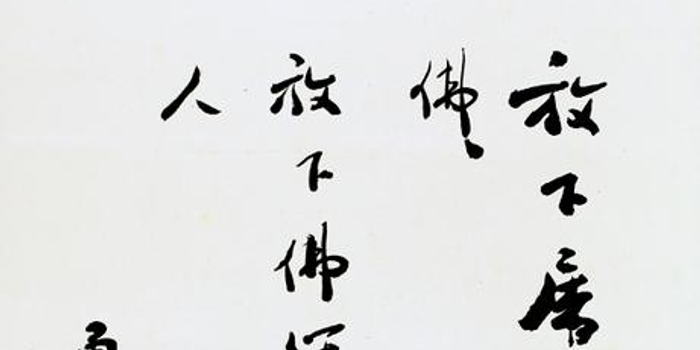 放下屠
佛
放下佛
人